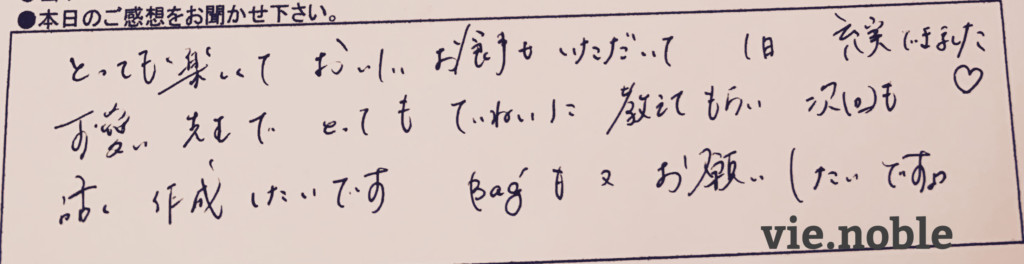 ●本日のご感想をお聞かせ下さい。
とっても楽しくて おいしい お食事も いただいて 1日 充実できました♡
可愛い 先生で とっても ていねいに 教えてもらい 次回も
作成したいです Bagも又 お願いしたいです。
vie.noble